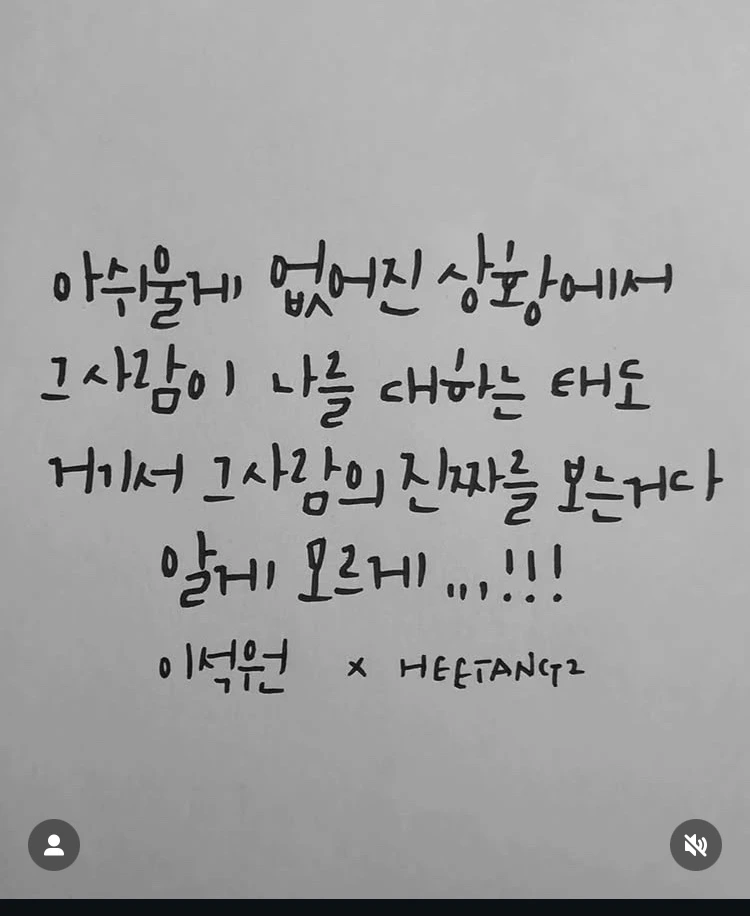 아쉬울게 없어진 상황에서
그 사람이 나를 대하는 태도
거기서 그 사람의 진짜를 보는거다
알게 모르게 ...!!!
이석원 x HEETANG2